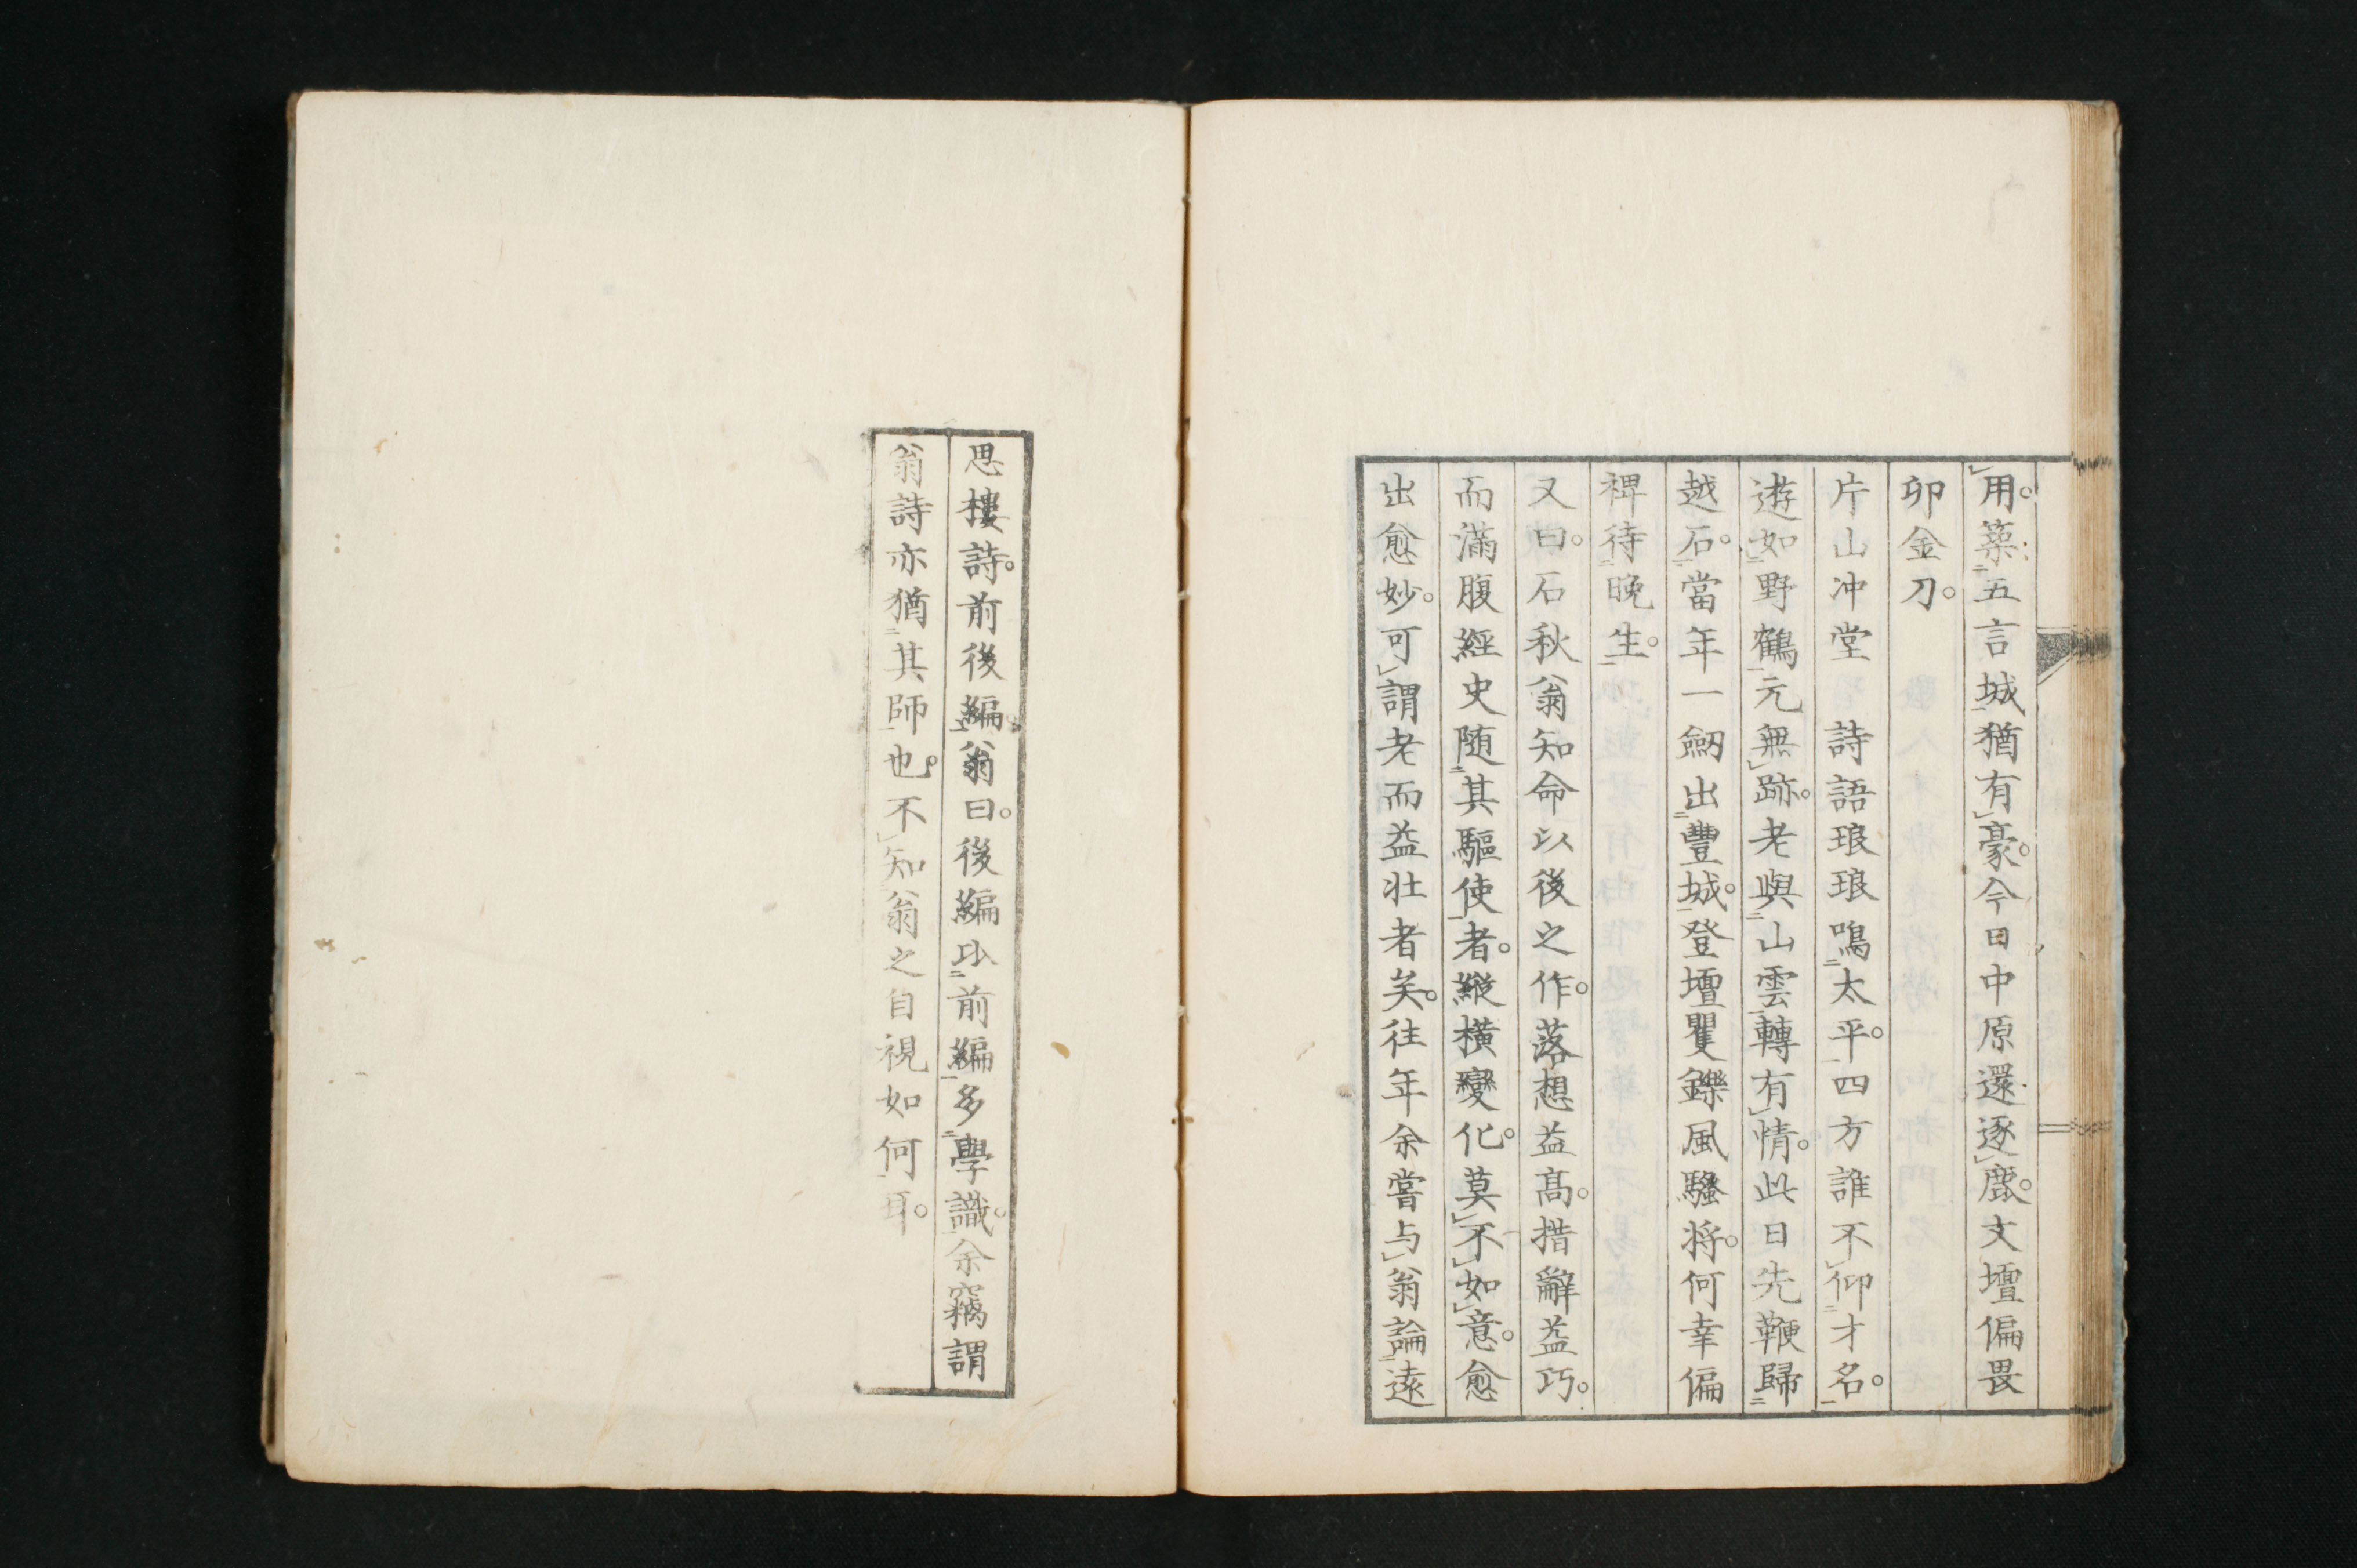 用。築五言城猶有豪。今日中原還逐鹿。文壇偏畏
卯金刀。
片山冲堂　詩語琅琅鳴太平。四方誰不仰才名。
遊如野鶴元無跡。老與山雲轉有情。此日先鞭歸
越石。當年一劒出豐城。登壇矍鑠風騷将。何幸偏
裨待晚生。
又曰。石秋翁知命以後之作。落想益髙。措辭益巧。
而滿腹經史随其驅使者。縱橫變化。莫不如意。愈
出愈妙。可謂老而益壮者矣。往年余嘗与翁論遠
思樓詩。前後編。翁曰。後編比前編多學識。余竊謂
翁詩亦猶其師也。不知翁之自視如何耳。